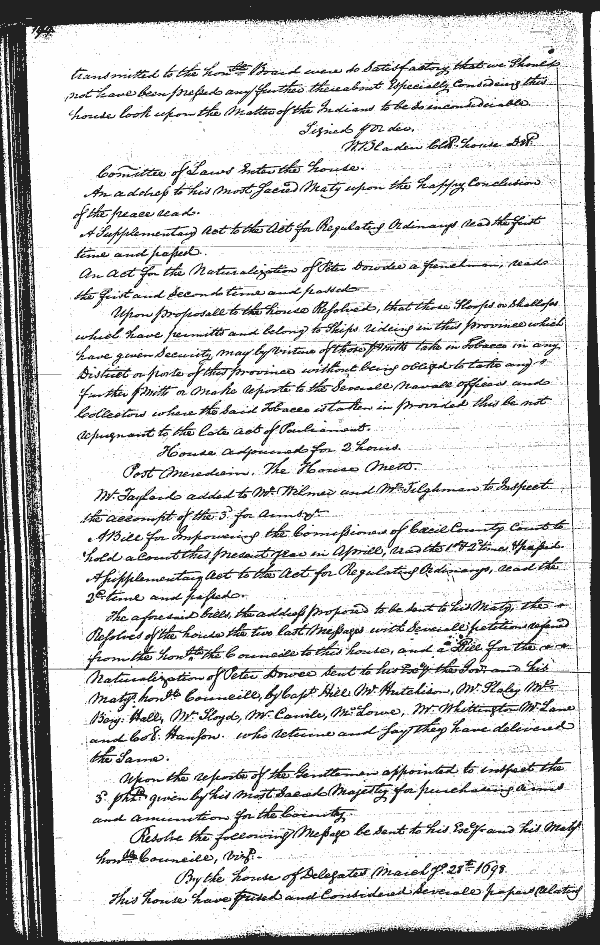 transmitted to the hon.ble Board were so Satisfactory, that we Should
not have been pressed any further thereabout Especially Considering this
house look upon the Matter of the Indians to be so inconsiderable
Signed p Order.
W. Bladen Clk. house Del.
Comittee of Laws Enter the house.
An address to his most Sacred Maty upon the happy Conclusion
of the peace read.
A Supplementary Act to the Act for Regulating Ordinarys read the first
time and past.
An Act for the Naturalization of Peter Dowdee a frenchman, read
the first and Second time and passed
Upon proposall to the house Resolved, that those Sloops or Shallops
which have permitts and belong to Ships rideing in this province which
have given Security, may by virtue of those pmitts take in Tobacco in any
District or porte of this province without being obliged to take any
further pmitt or make reporte to the Severall navall officers and
Collectors where the said Tobacco is taken in provided this be not
repugnant to the late act of Parliament.
House adjourned for 2 hours.
Post Meredeim. The House Mett.
Mr. Taylard added to Mr. Wilmer and Mr. Tilghman to Inspect
the accompt of the 3d for armbys.
A Bill for Impowring the Comissioners of Cecil County Court to
hold a Court this present year in Aprill, read the 1st & 2d time & passed.
A Supplementary Act to the Act for Regulating Ordinarys, read the
2d time and passed.
The aforesaid bills, the address proposed to be sent to his Maty. the
Resolves of the house the two last Messages with Severall petitions referred
from the honble the Councile to this house, and a Bill for the
Naturalization of Peter Dowee sent to his Excy the Gov. and his
Matys. honble Councill, by Capt. Hill Mr. Hutchison, Mr. Staley Mr.
Benj. Hall, Mr. Lloyd, Mr. Canile, Mr. Lowe, Mr. Whittington Mr. Lane
and Col. Hanson. who returne and say they have delivered
the Same.
Upon the reporte of the Gentlemen appointed to inspect the
3d phd. given by his most Sacred Majesty for purchasing arms
and amunition for the Country.
Resolve the following Message be sent to his Excy and his Matys
honble Councile, vizt.
By the house of Delegates March ye. 28th 1698.
This house have prused and Considered Severall papers relating